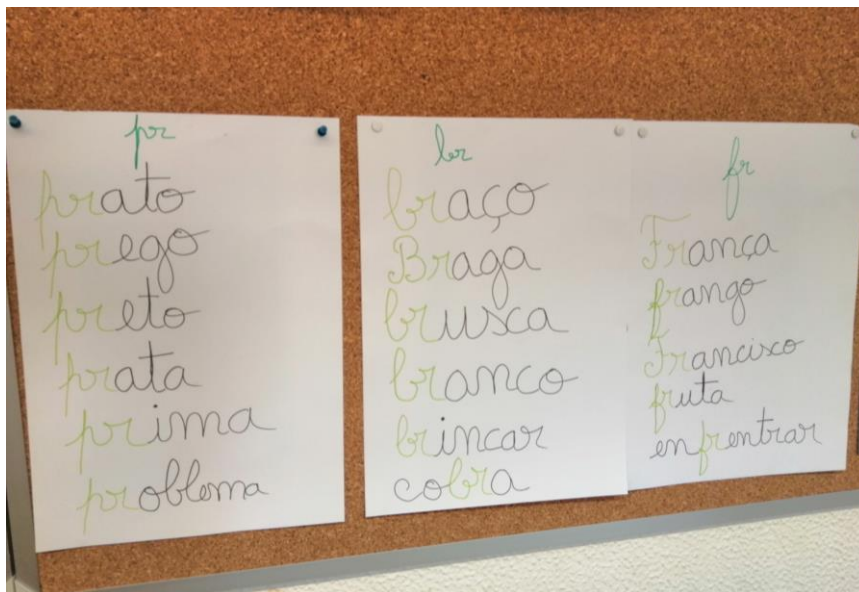 pr
prato
prego
preto
prata
prima
problema
br
braço
Braga
brusca
branco
brincar
cobra
fr
França
frango
Francisco
fruta
enfrentrar